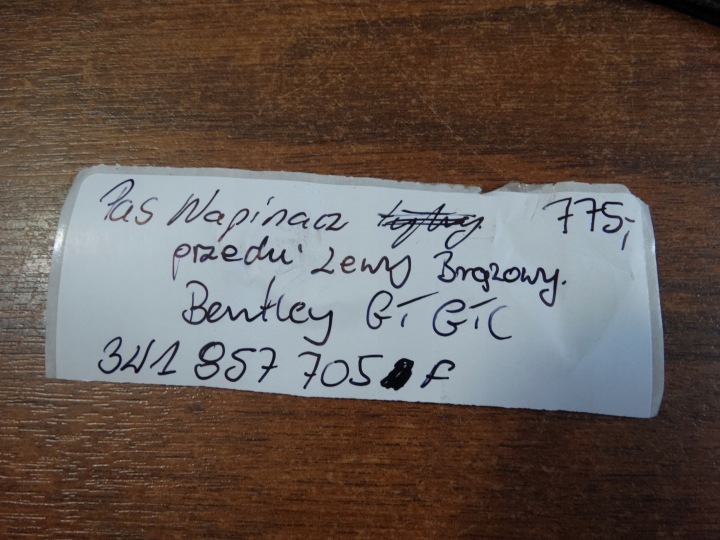 Pas Napinacz tylny 775,-
przedni Lewy Brązowy.
Bentley GT GTC
3W1 857 705 F